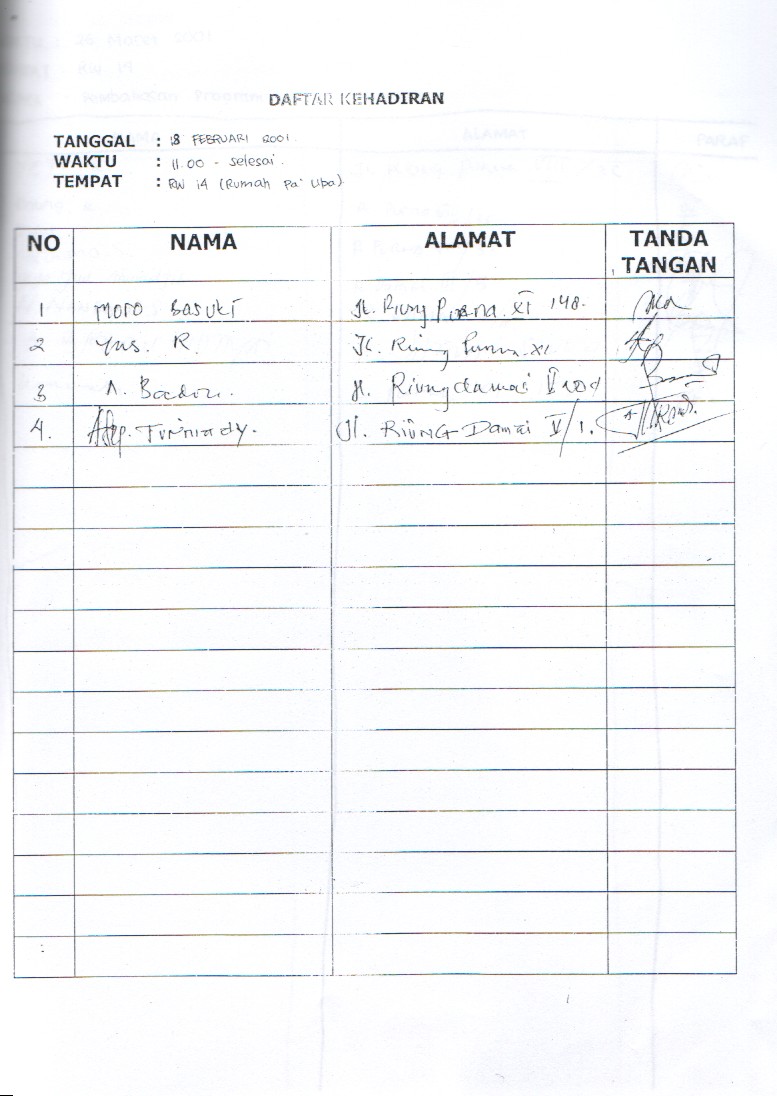 DAFTAR KEHADIRAN
TANGGAL : 18 FEBRUARI 2001.
WAKTU : 11.00 - selesai.
TEMPAT : RW 14 (Rumah Pa' Uba)
NO NAMA ALAMAT TANDA TANGAN
1 MOTO BASUKI Jl. Riung Purna XI 148.
2 Yus. R. Jl. Riung Purna XI
3 A. Jl. Riung damai V
4. Jl. RIUNG Damai V/1.